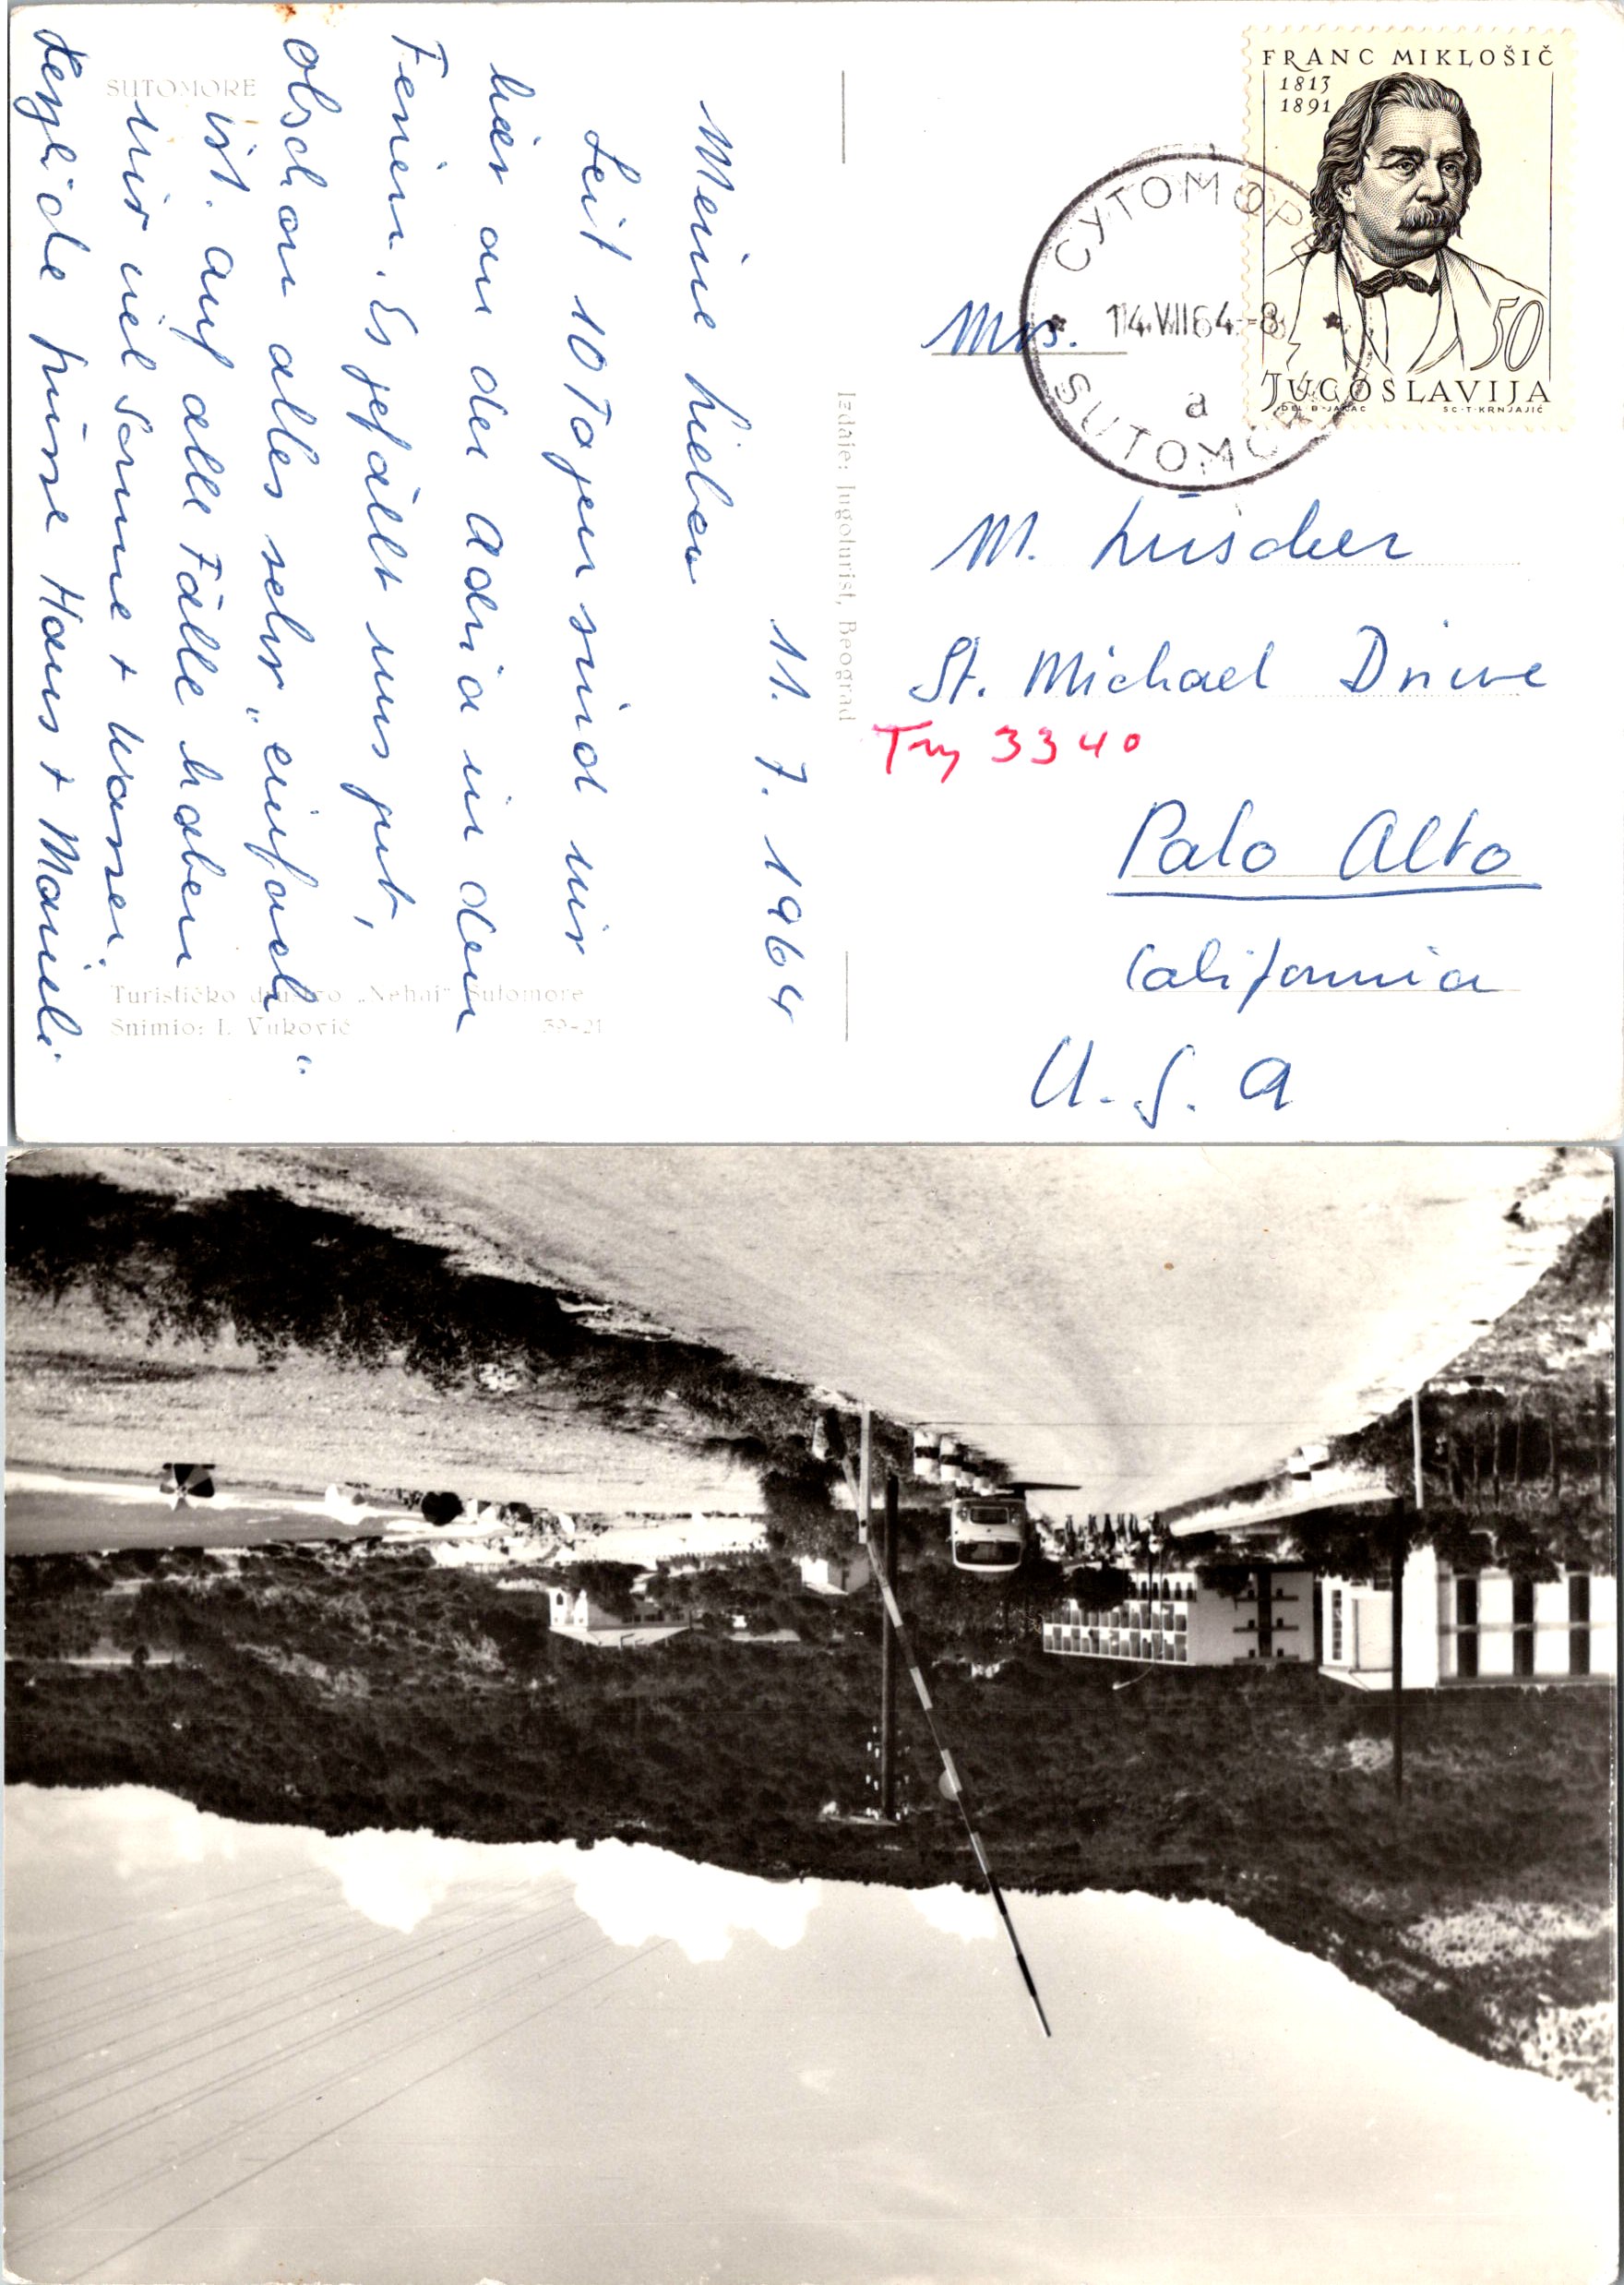 SUTOMORE
11. 7. 1964
Meine Lieben
Seit 10 Tagen sind wir
hier an der Adria in den
Ferien. Es gefällt uns gut,
obschon alles sehr „einfach"
ist. Auf alle Fälle haben
wir viel Sonne + Wasser.
Herzliche Grüsse Hans + Marieli
Turističko društvo „Nehaj" Sutomore
Snimio: I. Vuković 59-21
Izdaje: Jugoturist, Beograd
FRANC MIKLOŠIČ
1813
1891
50
JUGOSLAVIJA
DEL·B·JAKAC SC·T·KRNJAJIĆ
СУТОМОРЕ
14.VII64-8
a
SUTOMORE
Mrs.
M. Lüscher
St. Michael Drive
Try 3340
Palo Alto
California
U.S.A